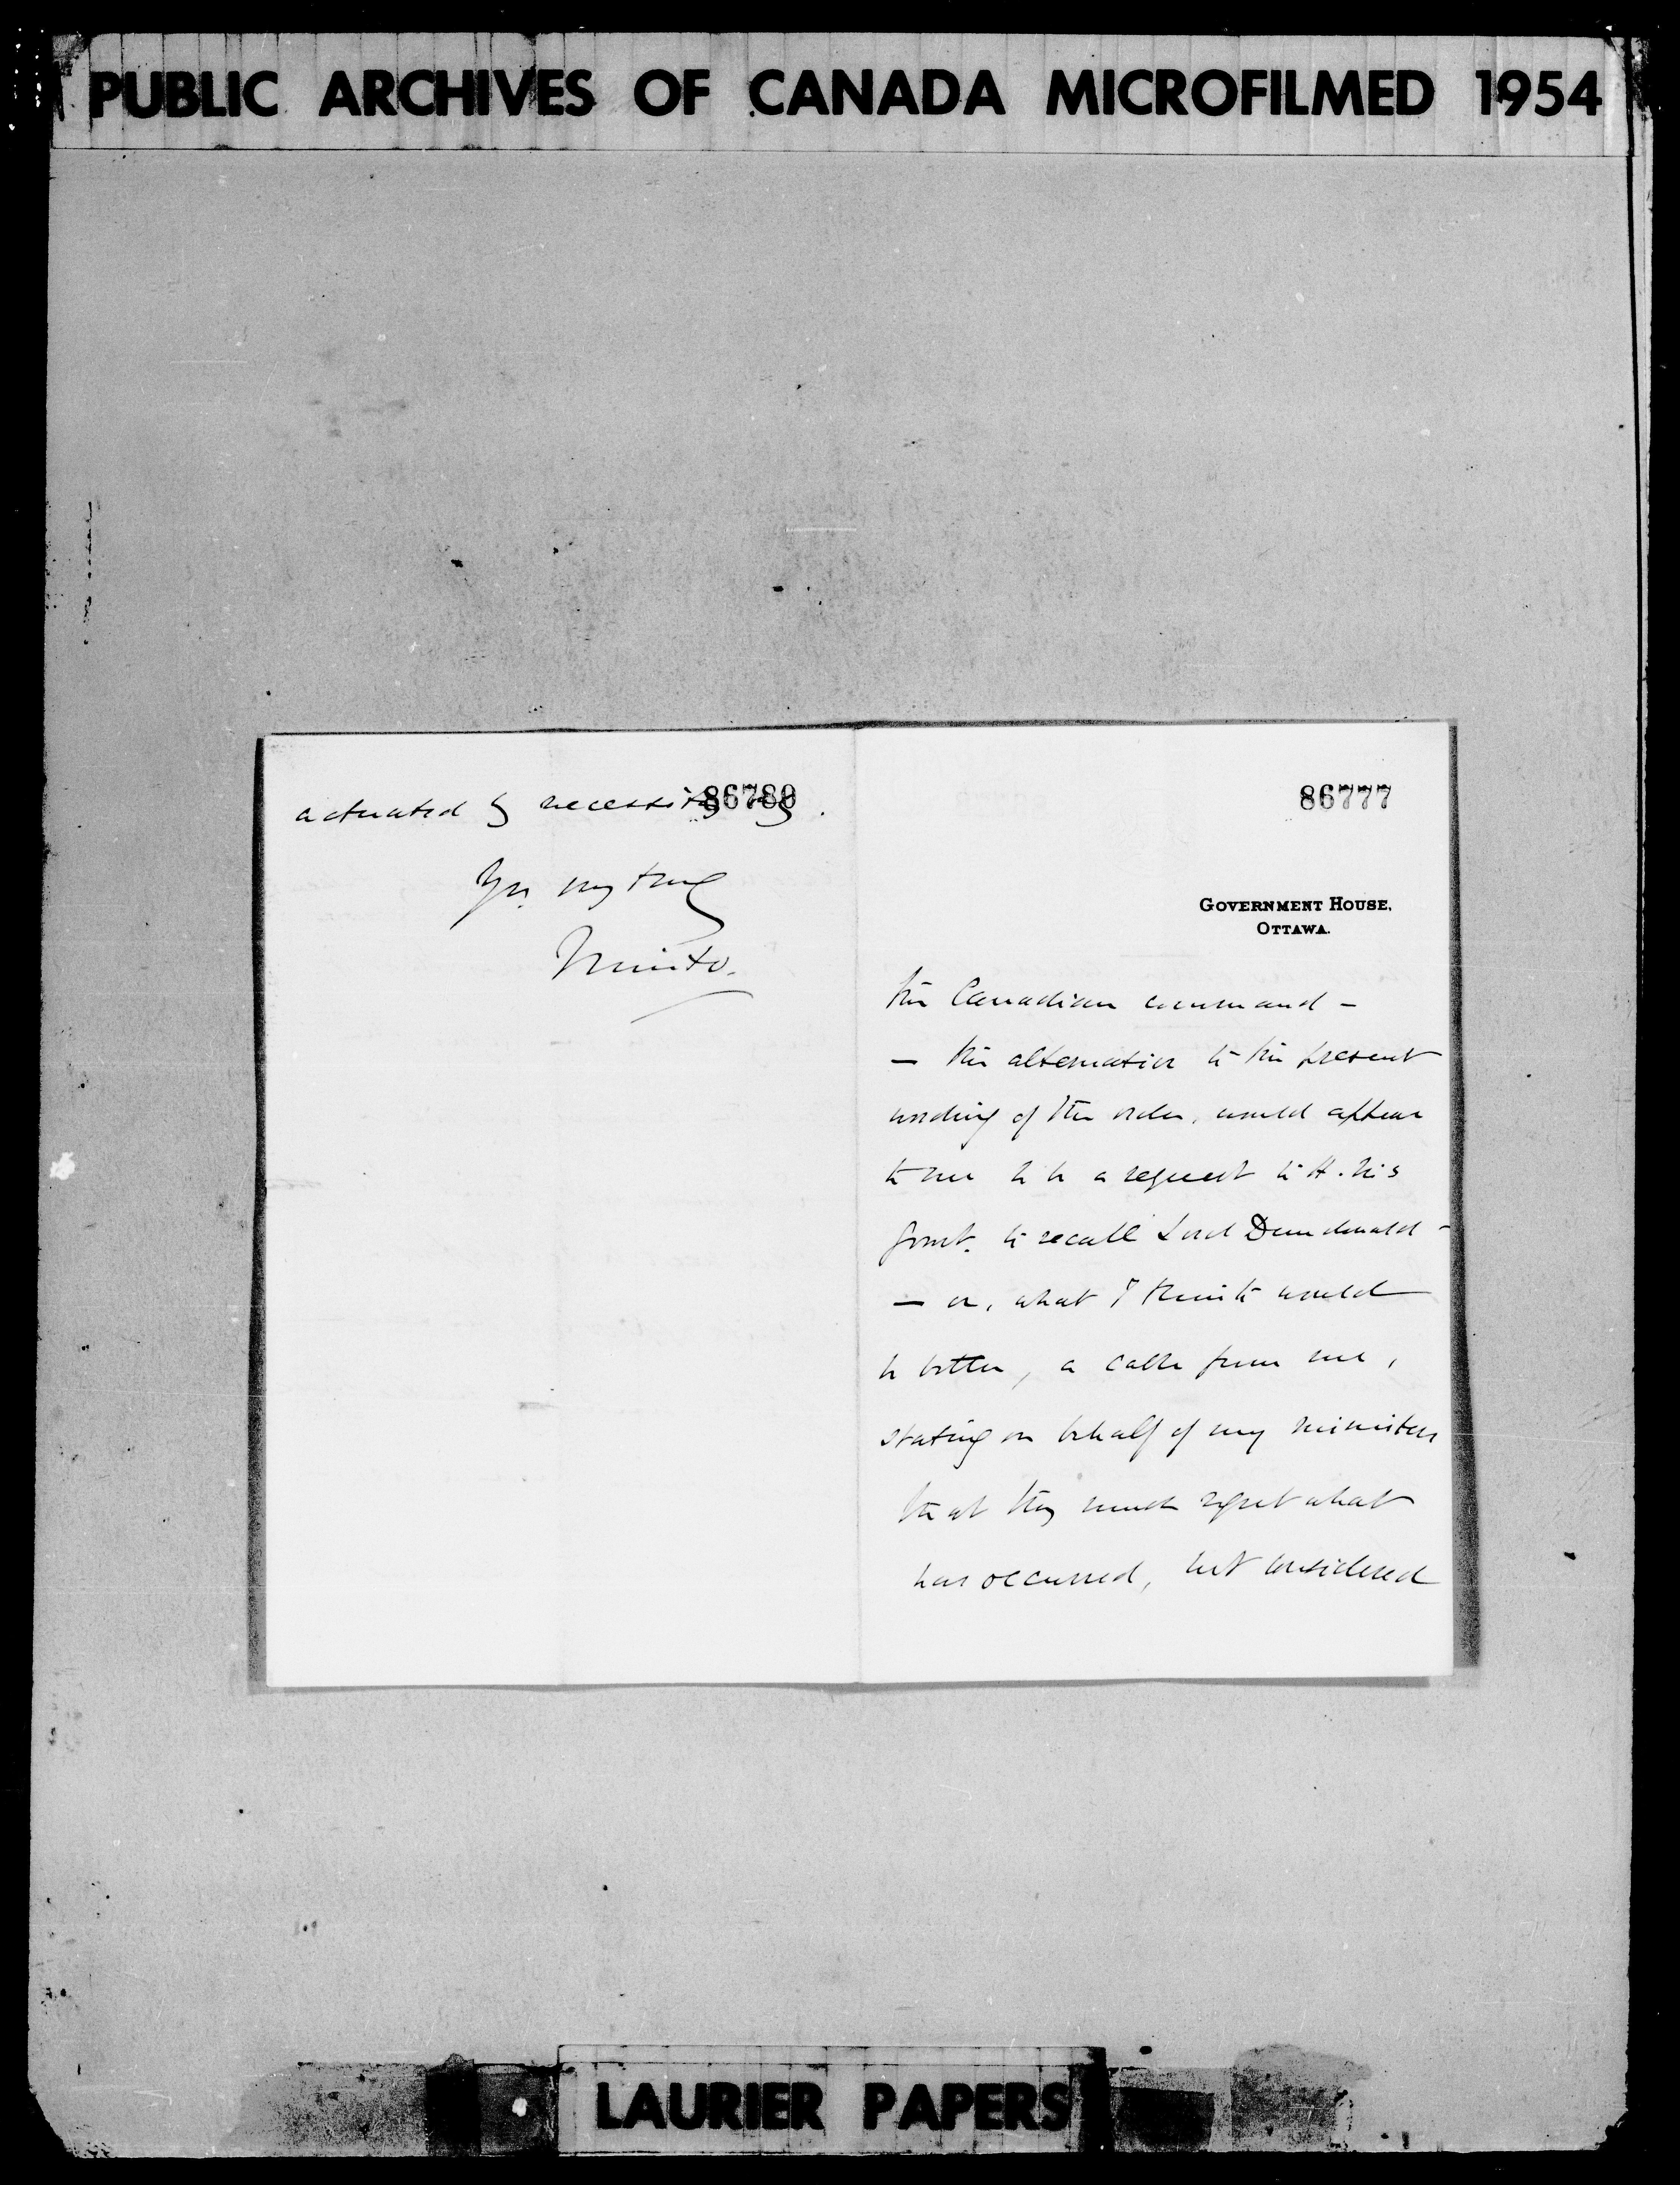 PUBLIC ARCHIVES OF CANADA MICROFILMED 1954
86780
actuated by necessity
Yrs. very truly
Minto.
86777
GOVERNMENT HOUSE,
OTTAWA.
the Canadian command —
— the alternative to the present
wording of the order, would appear
to me to be a request to H. M's
Govnt. to recall Lord Dundonald —
— or, what I think would
be better, a cable from me,
stating on behalf of my ministers
that they much regret what
has occurred, but considered
LAURIER PAPERS